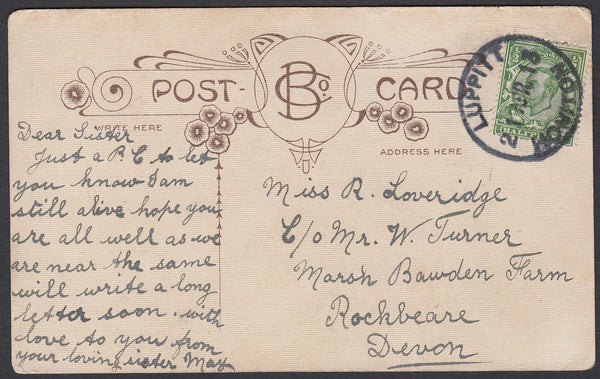 POST CARD
B Co
WRITE HERE
ADDRESS HERE
LUPPITT
HONITON
HALF
Dear Sister
Just a P. C to let
you know I am
still alive hope you
are all well as we
are near the same
will write a long
letter soon. with
love to you from
your loving sister May
Miss R. Loveridge
C/o Mr. W. Turner
Marsh Bawden Farm
Rockbeare
Devon